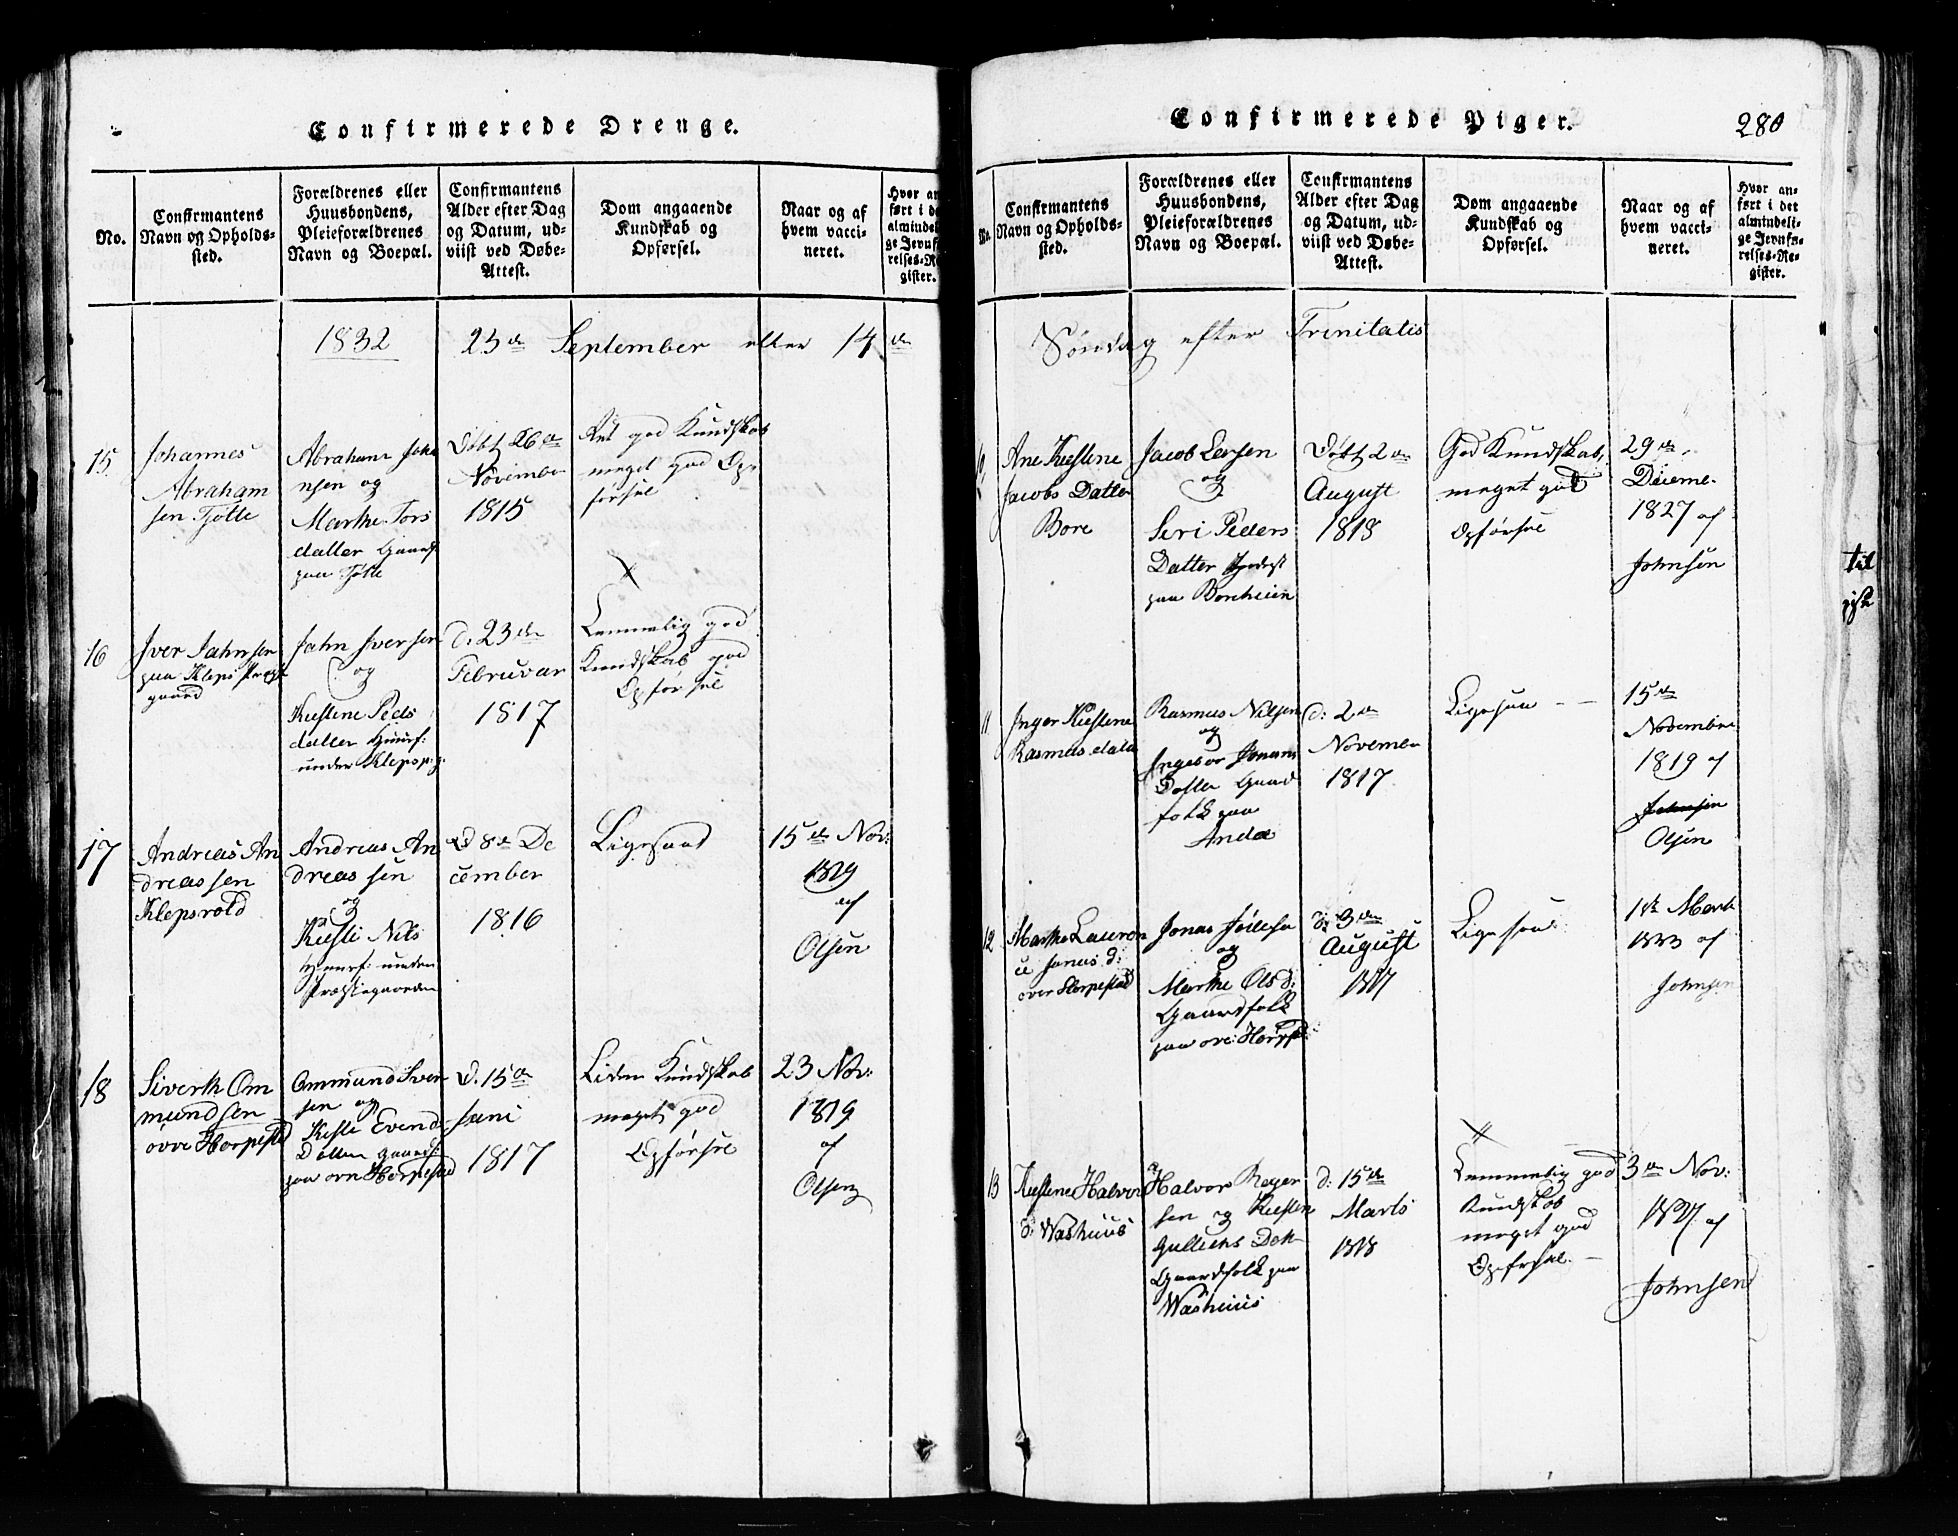 Confirmerede Drenge.
No.
Confirmantens
Navn og Opholds-
sted.
Forældrenes eller
Huusbondens,
Pleieforældrenes
Navn og Boepæl.
Confirmantens
Alder efter Dag
og Datum, ud-
viist ved Døbe-
Attest.
Dom angaaende
Kundskab og
Opførsel.
Naar og af
hvem vacci-
neret.
Hvor an
ført i de
almindel
ge Jevnf
relses-R
gister.
1832 23de September eller 14de
15
Johannes
Abraham
sen Tjøtte
Abraham Joha
nsen og
Marthe Tors
datter Gaardf
paa Tjøtte
Døbt 26de
November
1815
Ret god Kundskab
meget god Op
førsel
16
Iver Jahnsen
paa Kleps Præste
gaard
Jahn Iversen
og
Kirstene Peds
datter Huusf:
under Klepspg:
d: 23de
Februvar
1817
Temmelig god
Kundskab god
Opførsel
17
Andreas An
dreassen
Klepsvold
Andreas An
dreassen
og
Kirsti Nils
Huusf: under
Præstegaarden
d 8de De
cember
1816
Ligesaa
15de Nov:
1819
af
Olsen
18
Siverth Om
mundsen
ovre Horpestd
Ommund Sven
sen og
Kirsti Evend
Datter Gaardf:
paa ovre Horpestad
d. 15de
Juni
1817
Liden Kundskab
meget god
Opførsel
23 Nov:
1819
af
Olsen
Confirmerede Piger.
280
No.
Confirmantens
Navn og Opholds-
sted.
Forældrenes eller
Huusbondens,
Pleieforældrenes
Navn og Boepæl.
Confirmantens
Alder efter Dag
og Datum, ud-
viist ved Døbe-
Attest.
Dom angaaende
Kundskab og
Opførsel.
Naar og af
hvem vacci-
neret.
Hvor an-
ført i det
almindeli-
ge Jevnfø-
relses-Re-
gister.
Søndag efter Trinitatis
Ane Kirstene
Jacobs Datter
Bore
Jacob Larsen
og
Siri Peders
Datter
paa
Døbt 2de
August
1818
God Kundskab,
meget god
Opførsel
29de
Deceme.
1827 af
Johnsen
11
Inger Kirstene
Rasmusdatr
Rasmus Nilsen
og
Ingebor
Datter Gaard
folk paa
Anda
d: 2de
Novemer
1817
Ligesaa
15de
November
1819 af
Johnsen
Olsen
12
Marthe Lauren
ce Jonas d:
over Horpestad
Jonas
og
Marthe Ols d:
Gaardfolk
paa ovr: Horpst
d: 3de
August
1817
Ligesaa
1ste Marts
1823 af
Johnsen
13
Kirstene Halvor
d: Washuus
Halvor Reier
sen og Kirsten
Gulleichs Dotr
Gaardfolk paa
Washuus
d: 15de
Marts
1818
Temmelig god
Kundskab
meget god
Opførsel.
3de Nov:
1827 af
Johnsen
til